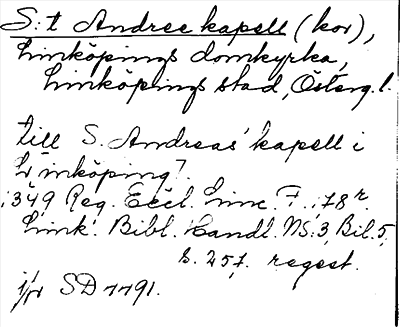 S:t Andree kapell (kor),
Linköpings domkyrka,
Linköpings stad, Österg. l.
till S. Andreas' kapell i
Linköping?
1349 Reg. Eccl. Linc. F. 178 r.
Link. Bibl. Handl. NS: 3, Bil. 5,
s. 257. regest.
jfr SD 7791.